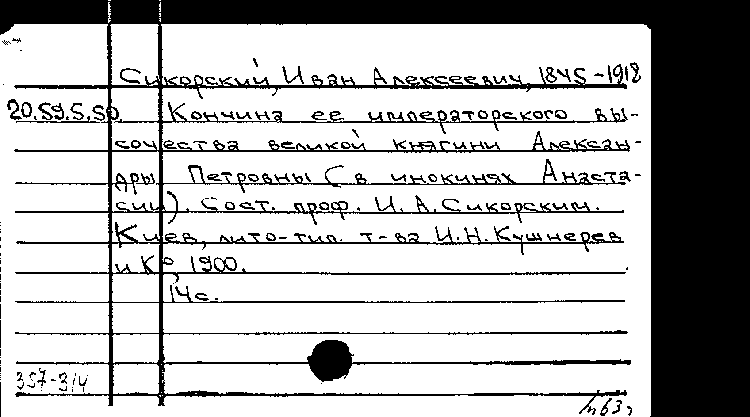 Сикорский, Иван Алексеевич, 1845-1918
20.59.5.50. Кончина ее императорского вы-
сочества великой княгини Алексан-
дры Петровны (в инокинях Анаста-
сии). Сост. проф. И.А.Сикорским.
Киев, лито-тип. т-ва И.Н.Кушнерев
и К°, 1900.
14с.
357-314